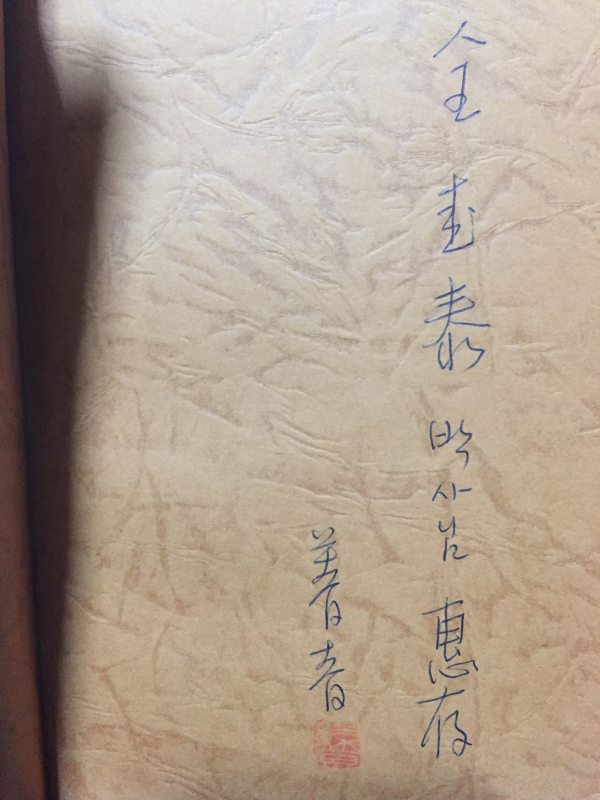 全圭泰 박사님 惠存
著者